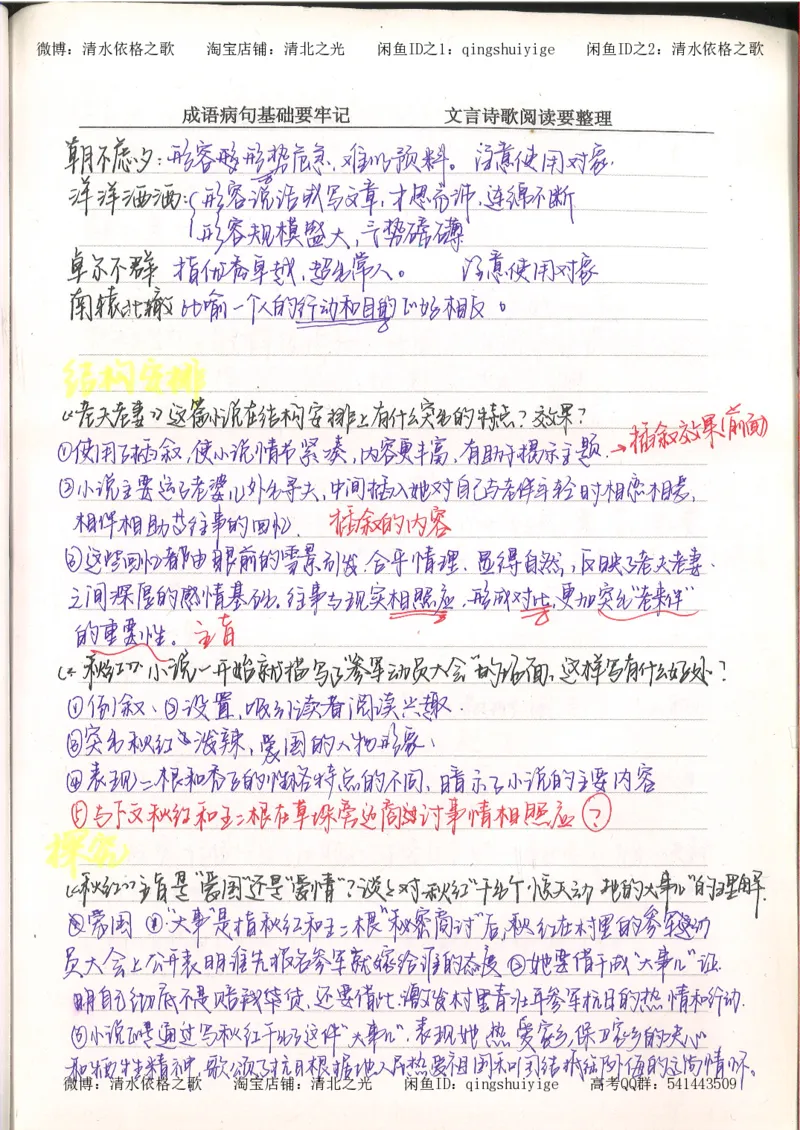 微博：清水依格之歌 淘宝店铺：清北之光 闲鱼ID之1：qingshuiyige 闲鱼ID之2：清水依格之歌
成语病句基础要牢记 文言诗歌阅读要整理
朝不虑夕：形容形势危急，难以预料。注意使用对象.
洋洋洒洒：形容说话或写文章，才思富沛，连绵不断
形容规模盛大，气势磅礴
卓尔不群 指优秀卓越，超出常人。 注意使用对象
南辕北辙 比喻一个人的行动和目的正好相反。
结构安排
《老夫老妻》这篇小说在结构安排上有什么突出的特点？效果？
①使用了插叙，使小说情节紧凑，内容更丰富，有助于揭示主题. →插叙效果(前面)
②小说主要写了老婆儿外出寻夫，中间插入她对自己与老伴年轻时相恋相爱，
相伴相助等往事的回忆. 插叙的内容
③这些回忆都由眼前的雪景引发.合乎情理.显得自然，反映了老夫老妻.
之间深厚的感情基础.往事与现实相照应.形成对比，更加突出“老来伴”
的重要性。 主旨
《秋红》小说一开始就描写了“参军动员大会”的场面，这样写有什么好处？
①倒叙、②设置，吸引读者阅读兴趣.
③突出秋红泼辣，爱国的人物形象、
④表现二根和秀的性格特点的不同，暗示了小说的主要内容
⑤与下文秋红和王二根在草垛旁边商讨事情相照应 ？
探究
《秋红》主旨是“爱国”还是“爱情”？谈谈对秋红“干出个惊天动地的大事儿”的理解.
爱国 “大事”是指秋红和王二根“秘密商讨”后，秋红在村里的参军动
员大会上公开表明谁先报名参军就嫁给谁的态度 ②她要借干成“大事儿”证
明自己彻底不是赔钱货，还要借此激发村里青壮年参军抗日的热情和行动.
③小说正是通过写秋红干出这件“大事儿”.表现她热爱家乡，保卫家乡的决心
和牺牲精神，歌颂了抗日根据地人民热爱祖国和团结抗御外侮的高尚情怀。
微博：清水依格之歌 淘宝店铺：清北之光 闲鱼ID：qingshuiyige 高考QQ群：541443509